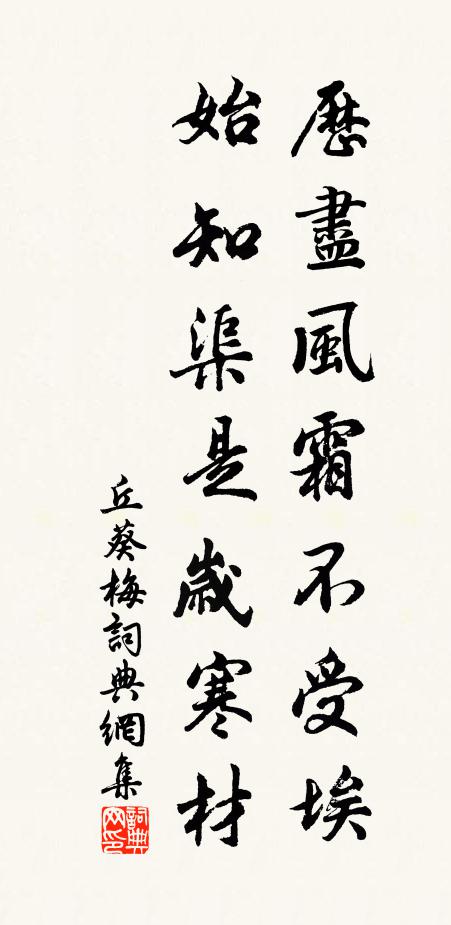 歷盡風霜不受埃
始知渠是歲寒材
丘葵梅詞典網集
詞典网印